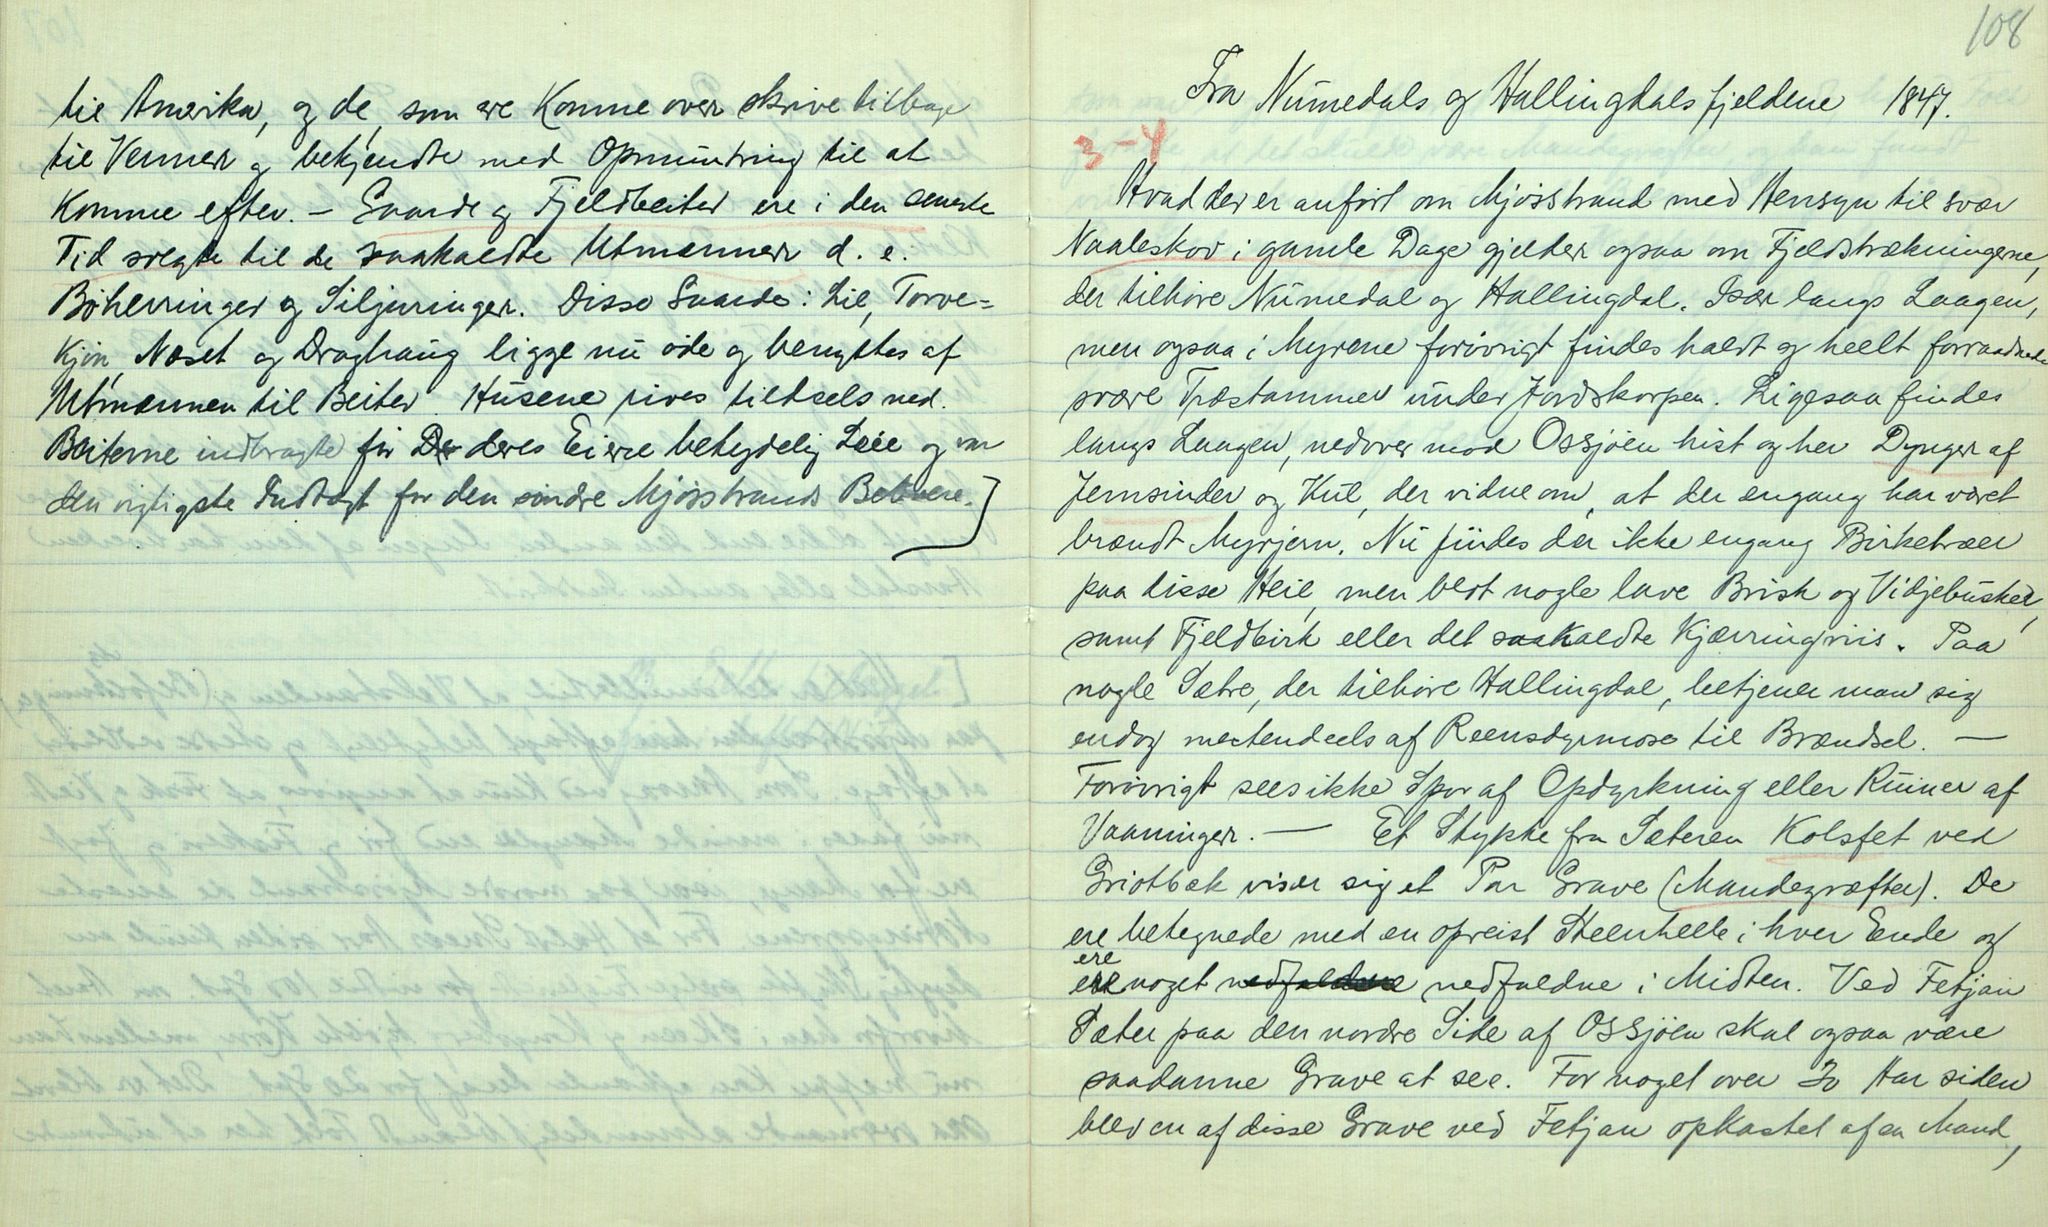 til Amerika, og de, som ere komme over skrive tilbage
til Venner og bekjendte med Opmuntring til at
komme efter. – Gaarde og Fjeldbeiter ere i den seneste
Tid solgte til de saakaldte Utmænner d. e.
Böherringer og Siljuringer. Disse Gaarde: Lil, Torve=
kjön, Næset og Draghaug ligge nu öde og benyttes af
Utmænnen til Beiter. Husene rives tildeels ned.
Beiterne indbragte för deres Eiere betydelig Leie og var
den vigtigste Indtægt for den söndre Mjösstrands Beboere.]
108
Fra Numedals og Hallingdalsfjeldene 1847.
3-4
Hvad der er anfört om Mjösstrand med Hensyn til svær
Naaleskov i gamle Dage gjelder ogsaa om Fjeldstrækningerne,
der tilhöre Numedal og Hallingdal. Især langs Laagen,
men ogsaa i Myrene forövrigt findes haldt og heelt forraadnede
svære Træstammer under Jordskorpen. Ligesaa findes
langs Laagen, nedover mod Ossjöen hist og her Dynger af
Jernsinder og Kul, der vidne om, at der engang har været
brændt Myrjern. Nu findes der ikke engang Birketræer
paa disse Heie, men blot nogle lave Brisk og Vidjebusker,
samt Fjeldbirk eller det saakaldte Kjærringriis. Paa
nogle Sætre, der tilhöre Hallingdal, betjener man sig
endog mestendeels af Reensdyrmose til Brændsel. —
Forövrigt sees ikke Spor af Opdyrkning eller Ruiner af
Vaaninger. — Et Stykke fra Sæteren Kolsfet ved
Griotbæk viser sig et Par Grave (Mandegræfter). De
ere betegnede med en opreist Steenhelle i hver Ende og
ere noget nedfaldne nedfaldne i Midten. Ved Fetjan
Sæter paa den nordre Side af Ossjöen skal ogsaa være
saadanne Grave at see. For noget over 30 Aar siden
blev en af disse Grave ved Fetjan opkastet af en Mand,